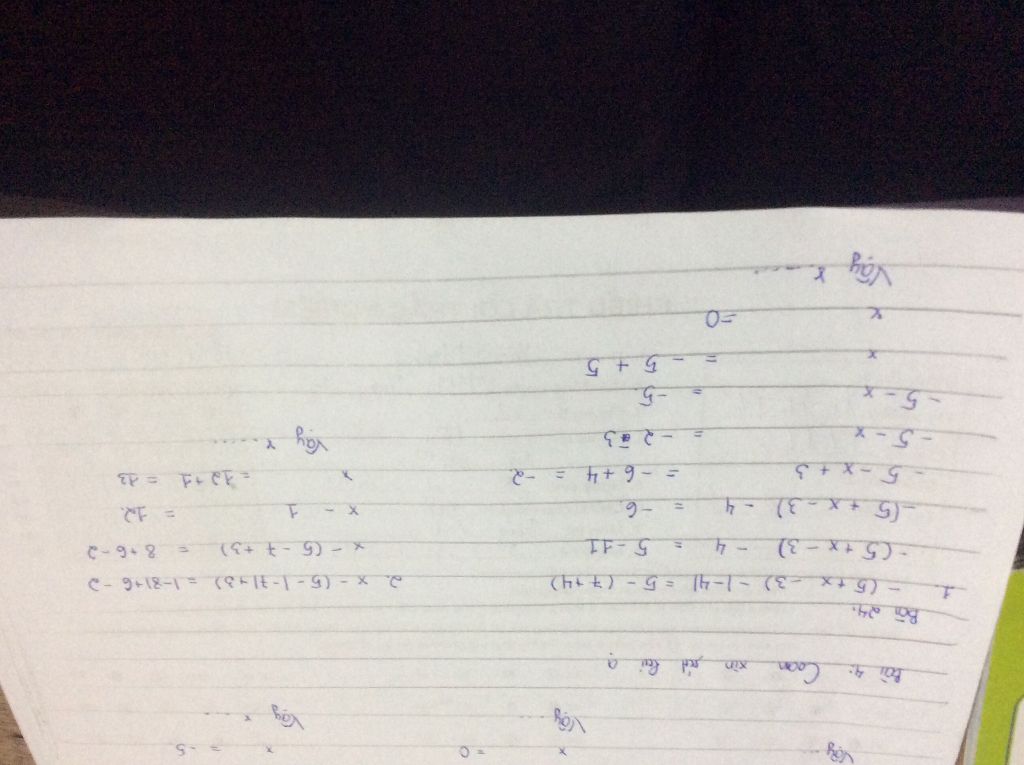 Vậy ... x = 0 x = -5.
Vậy ... Vậy x ....
Bài 4: xin lại ạ
Bài 24:
1. -(5+x-3) - |-4| = 5 - (7+4) 2. x - (5-|-7|+3) = |-8|+6-2
-(5+x-3) - 4 = 5-11 x - (5-7+3) = 8+6-2
-(5+x-3) - 4 = -6. x - 1 = 12.
-5-x+3 = -6+4 = -2. x = 12+1 = 13
-5-x = -2-3 Vậy x .....
-5-x = -5.
x = -5+5
x = 0
Vậy x .....